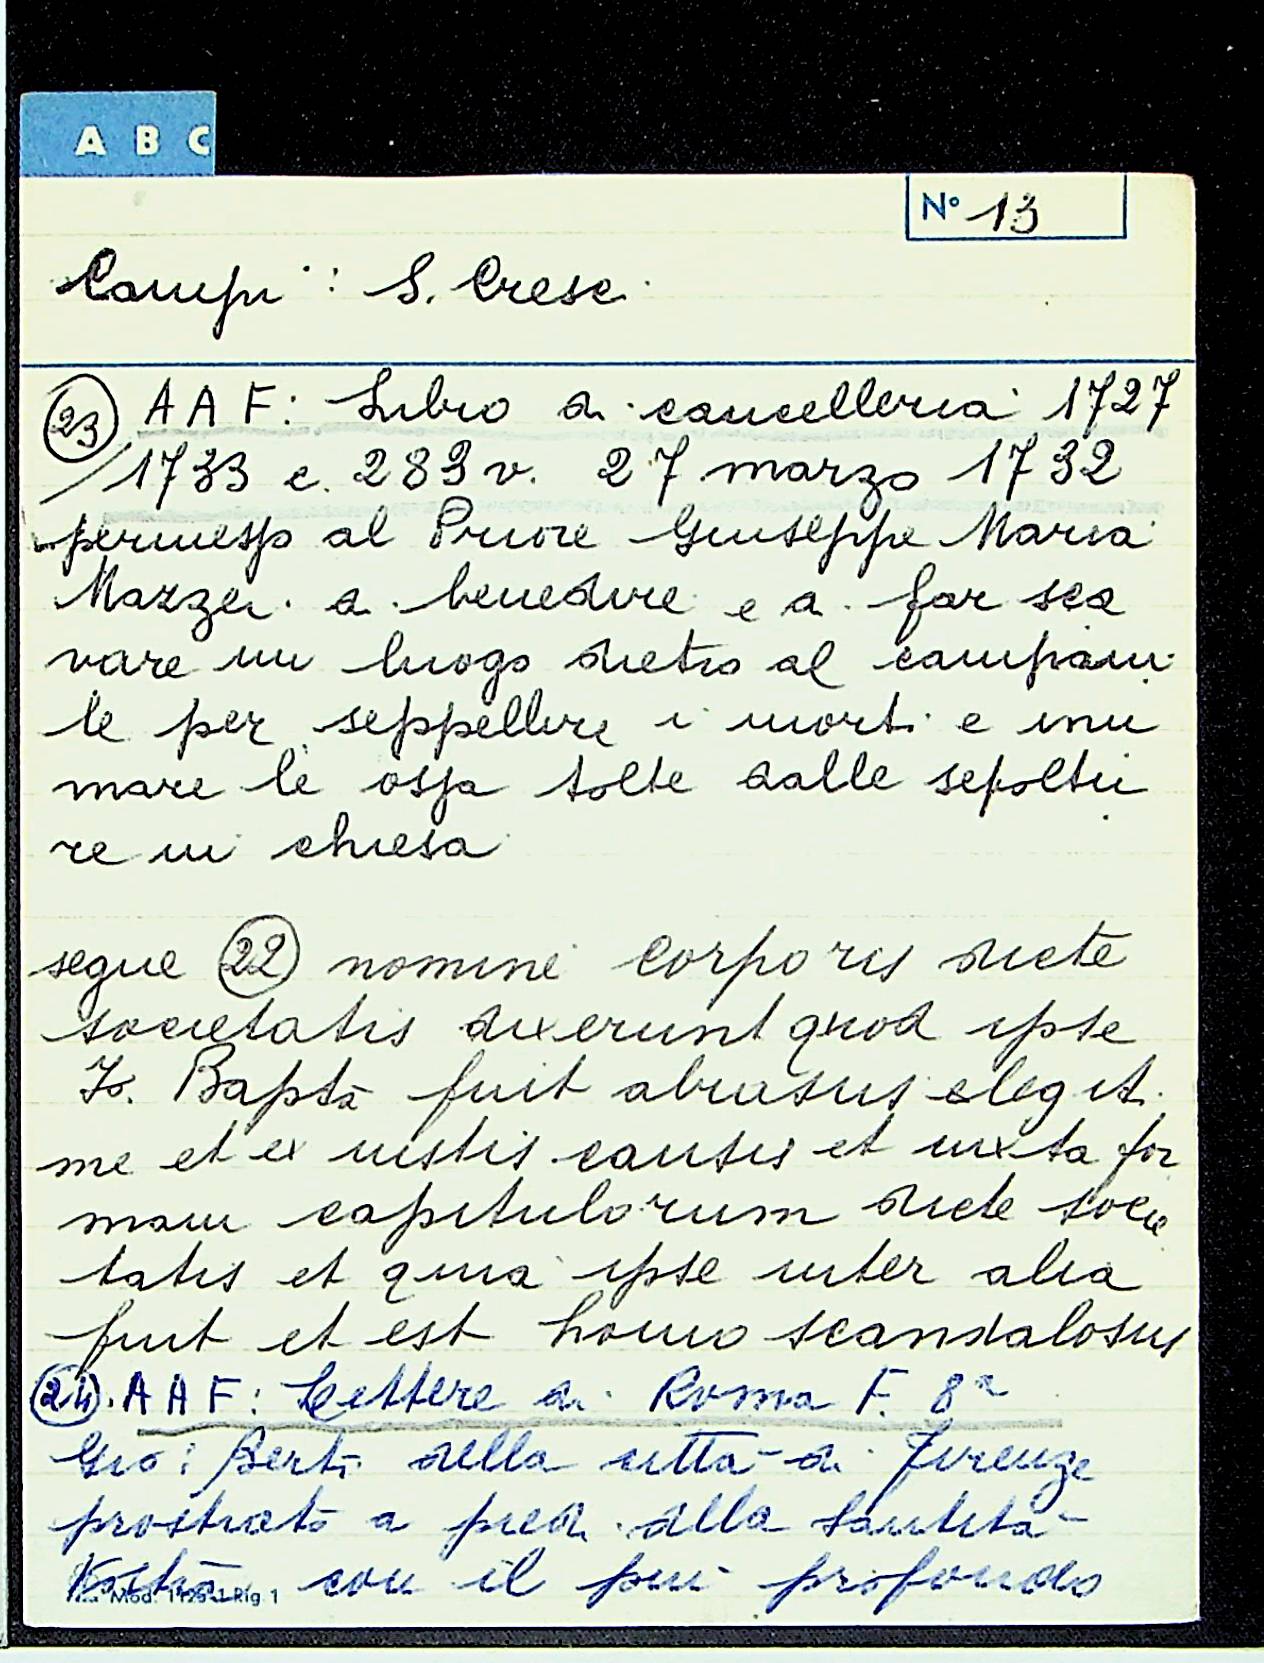 A B C
N° 13
Campi : S. Cresc.
(23) A A F: Libro di cancelleria 1727
/1733 c. 283 v. 27 marzo 1732
permesso al Priore Giuseppe Maria
Mazzei a benedire e a far sca
vare un luogo dietro al campani
le per seppellire i morti e inu
mare le ossa tolte dalle sepoltu
re in chiesa
segue (22) nomine corporis dicte
societatis dixerunt quod ipse
Jo. Bapta fuit abrasus elegit
me et ex iustis causis et iuxta for
mam capitulorum dicte socie
tatis et quia ipse inter alia
fuit et est homo scandalosus
(24). A A F: Lettere di Roma F. 8ª
Gio: Berti della città di Firenze
prostrato a piedi della Santità
Vostra con il più profondo
Mod. Rig. 1